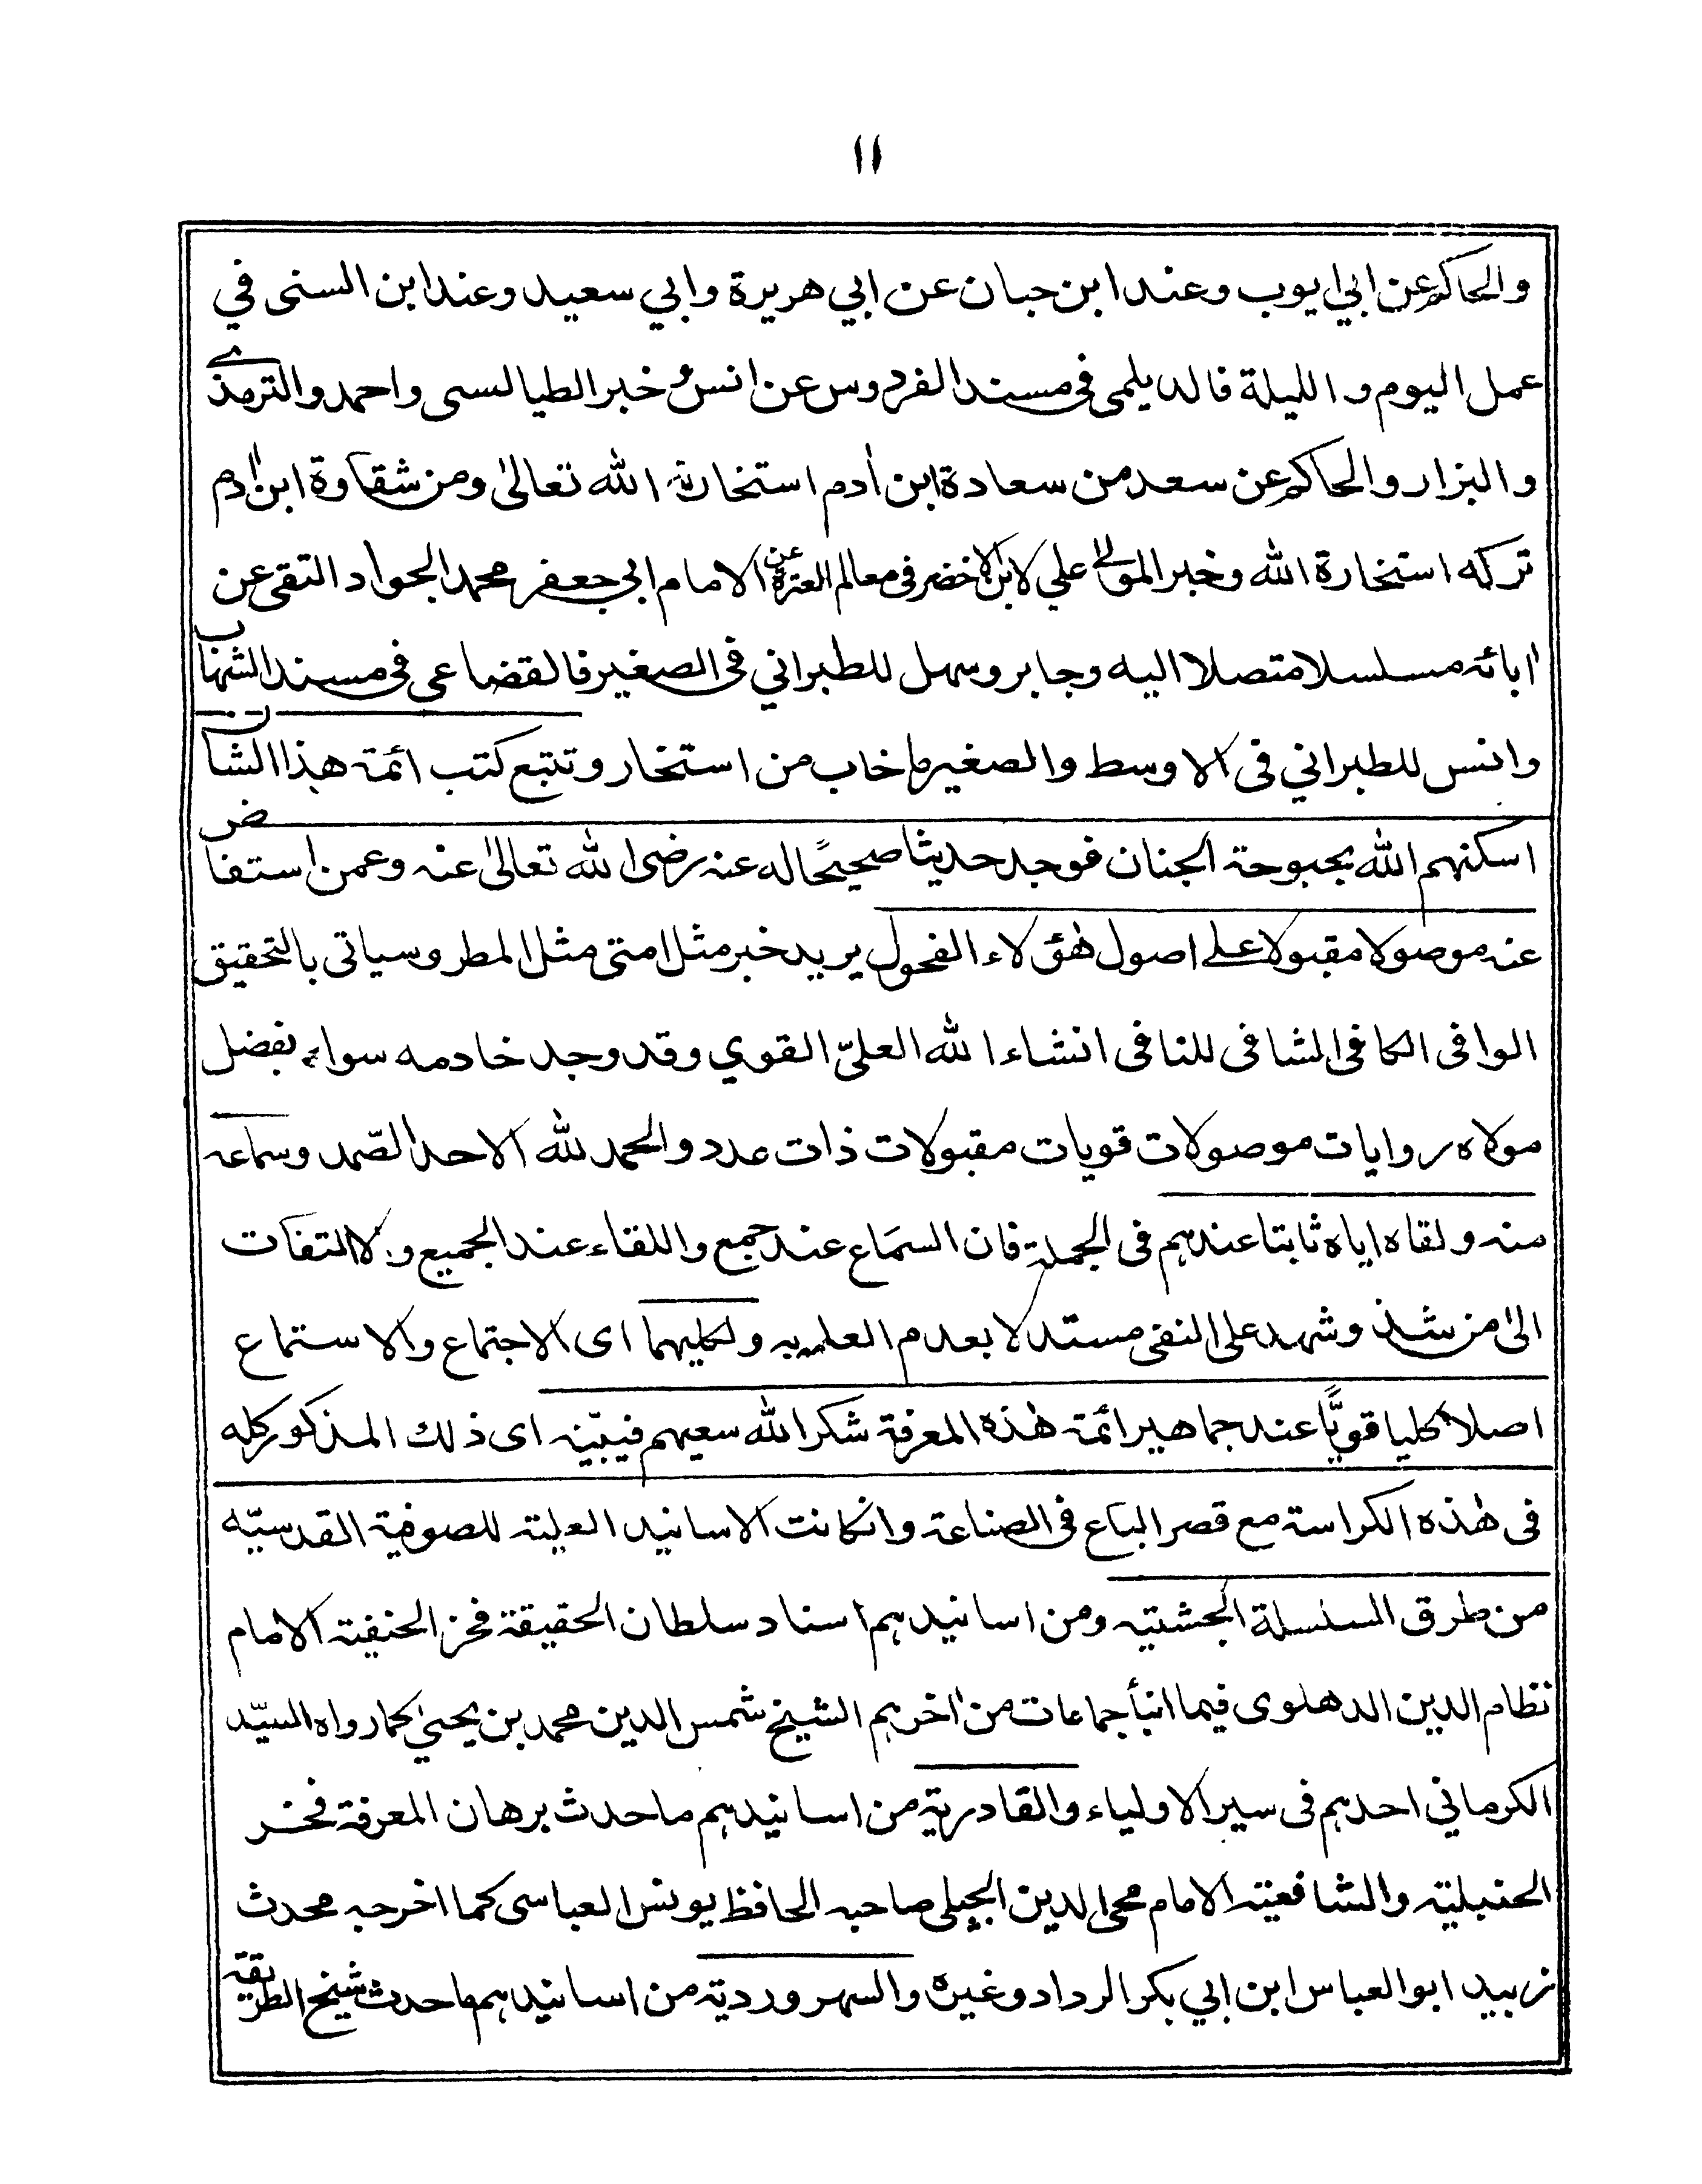 ١١
والحاكم عن ابي ايوب وعند ابن حبان عن ابي هريرة وابي سعيد وعند ابن السنى في
عمل اليوم والليلة فالديلمى فى مسند الفردوس عن انس وخبر الطيالسى واحمد والترمذي
والبزار والحاكم عن سعد من سعادة ابن اٰدم استخارته الله تعالىٰ ومن شقاوة ابن اٰدم
تركه استخارة الله وخبر المولىٰ علي لابن الاخضر فى معالم العترة عن الامام ابي جعفر محمد الجواد التقى عن
اٰبائه مسلسلا متصلا اليه وجابر وسهل للطبراني فى الصغير فالقضاعى فى مسند الشهاب
وانس للطبراني فى الاوسط والصغير ما خاب من استخار وتتبع كتب ائمة هذا الشان
اسكنهم الله بحبوحة الجنان فوجد حديثا صحيحًا له عنه رضى الله تعالىٰ عنه وعمن استفاض
عنه موصولا مقبولا علے اصول هٰؤلاء الفحول يريد خبر مثل امتى مثل المطر وسياتى بالتحقيق
الوافى الكافى الشافى للنافى انشاء الله العليّ القوي وقد وجد خادمه سواه بفضل
مولاه روايات موصولات قويات مقبولات ذات عدد والحمد لله الاحد الصّمد وسماعه
منه ولقاه اياه ثابتا عندهم فى الجملة فان السمَاع عند جمع واللقاء عند الجميع ولا التفات
الىٰ من شذ وشهد على النفى مستدلا بعدم العلم به ولكليهما اى الاجتماع والاستماع
اصلا كليا قويًّا عند جماهير ائمة هٰذه المعرفة شكر الله سعيهم فنبيّنه اى ذلك المذكور كله
فى هٰذه الكراسة مع قصر الباع فى الصناعة وانكانت الاسانيد العلية للصوفية القدسيّه
من طرق السلسلة الجشتيه ومن اسانيدهم اسناد سلطان الحقيقة فخر الحنفية الامام
نظام الدين الدهلوى فيما انبأ جماعات من اٰخرهم الشيخ شمس الدين محمد بن يحيىٰ كما رواه السيّد
الكرماني احدهم فى سير الاولياء والقادرية من اسانيدهم ما حدث برهان المعرفة فخر
الحنبلية والشافعية الامام محى الدين الجيلى صاحبه الحافظ يونس العباسى كما اخرجه محدث
زبيد ابو العباس ابن ابي بكر الرداد وغيره والسهروردية من اسانيدهم ما حدث شيخ الطريقة